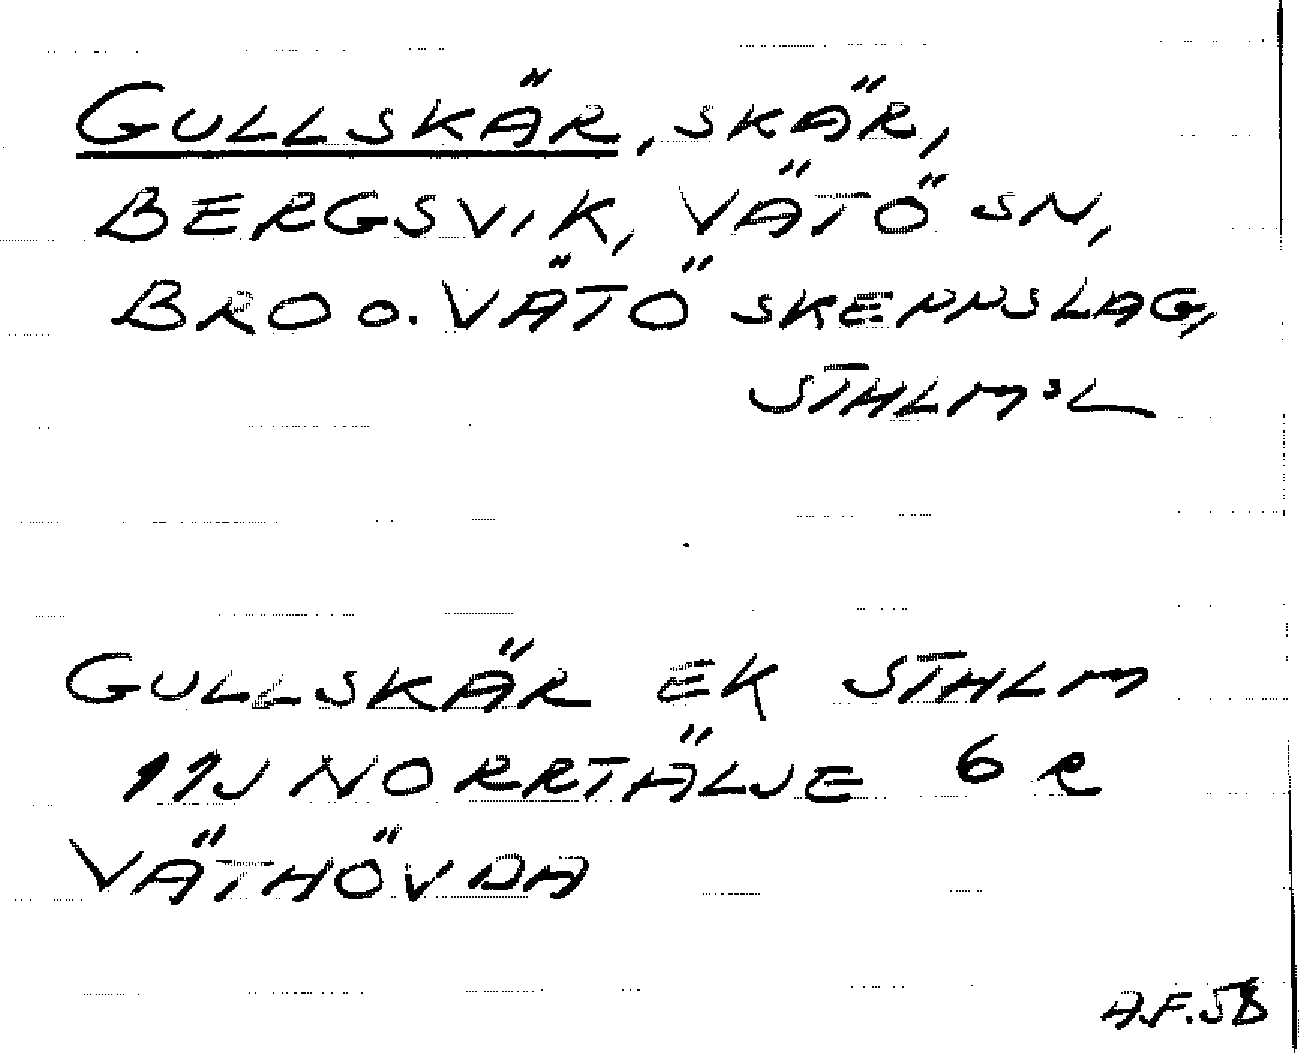 GULLSKÄR, SKÄR,
BERGSVIK, VÄTÖ SN,
BRO O. VÄTÖ SKEPPSLAG,
STHLMS L
GULLSKÄR EK STHLM
11J NORRTÄLJE 6 R
VÄTHÖVDA
A.F. 58